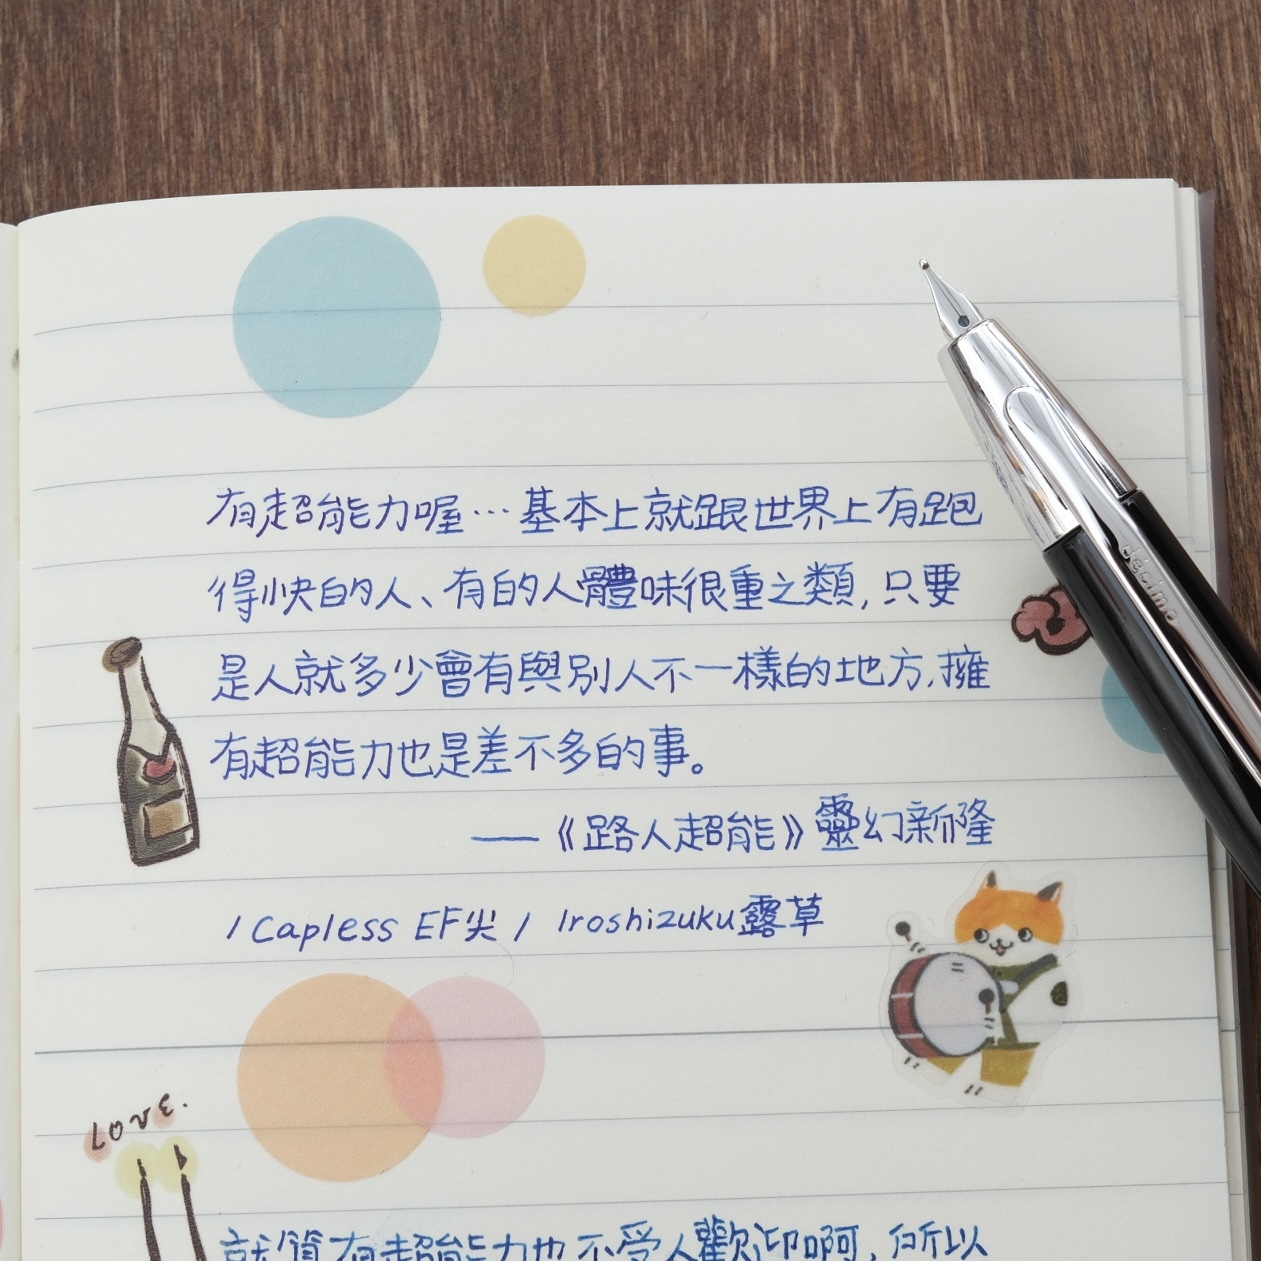 有超能力喔…基本上就跟世界上有跑
得快的人、有的人體味很重之類,只要
是人就多少會有與別人不一樣的地方,擁
有超能力也是差不多的事。
——《路人超能》靈幻新隆
/ Capless EF尖 / Iroshizuku露草
LOVE.
就算有超能力也不受人歡迎啊,所以
decimo